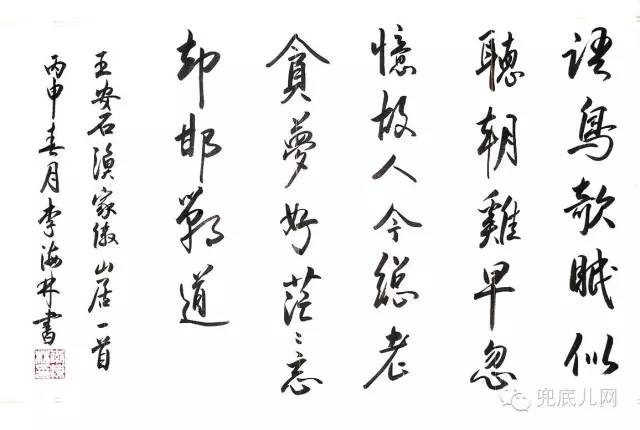 語鳥欹眠似
聽朝雞早忽
憶故人今總老
貪夢好茫〻忘
却邯鄲道
王安石漁家傲山居一首
丙申春月李海林書
兜底儿网